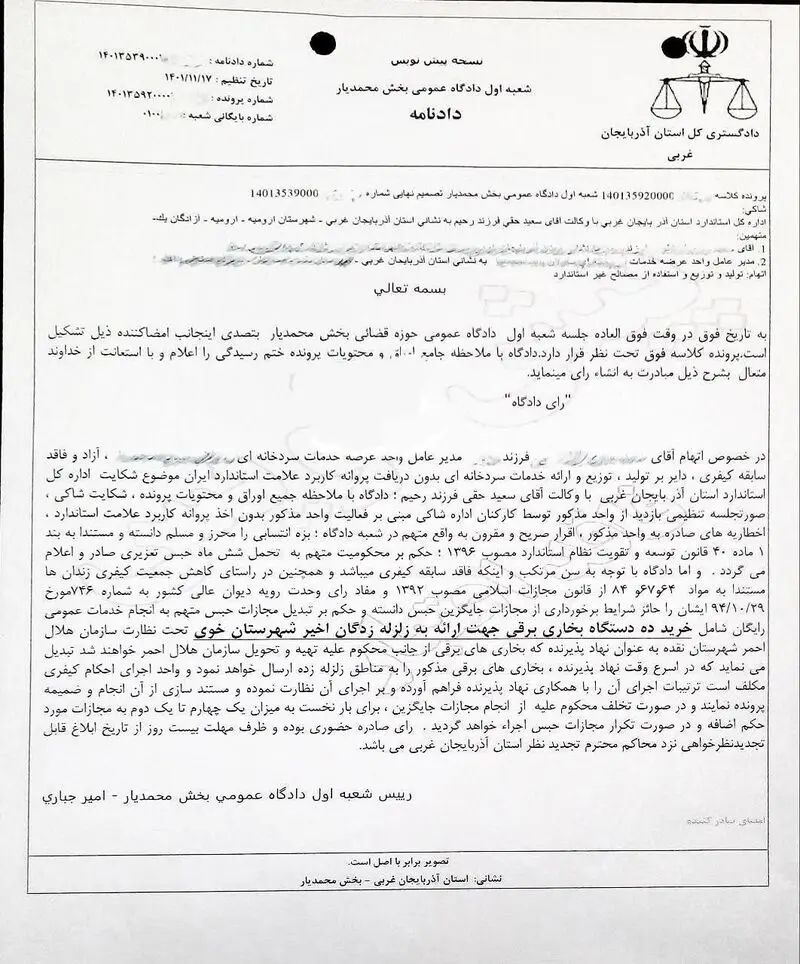 نسخه پیش نویس
شعبه اول دادگاه عمومی بخش محمدیار
دادنامه
دادگستری کل استان آذربایجان
غربی
شماره دادنامه : ۱۴۰۱۳۵۳۹۰۰۰
تاریخ تنظیم : ۱۴۰۱/۱۱/۱۷
شماره پرونده : ۱۴۰۱۳۵۹۲۰۰۰۰
شماره بایگانی شعبه : ۰۱۰۰
پرونده کلاسه 140135920000 شعبه اول دادگاه عمومی بخش محمدیار تصمیم نهایی شماره 14013539000
شاکی:
اداره کل استاندارد استان آذر بایجان غربی با وکالت آقای سعید حقی فرزند رحیم به نشانی استان آذربایجان غربی - شهرستان ارومیه - ارومیه - آزادگان یک-
متهمین:
1. آقای فرزند
2. مدیر عامل واحد عرضه خدمات به نشانی استان آذربایجان غربی -
اتهام: تولید و توزیع و استفاده از مصالح غیر استاندارد
بسمه تعالی
به تاریخ فوق در وقت فوق العاده جلسه شعبه اول دادگاه عمومی حوزه قضائی بخش محمدیار بتصدی اینجانب امضاکننده ذیل تشکیل
است.پرونده کلاسه فوق تحت نظر قرار دارد.دادگاه با ملاحظه جامع اوراق و محتویات پرونده ختم رسیدگی را اعلام و با استعانت از خداوند
متعال بشرح ذیل مبادرت به انشاء رای مینماید.
"رای دادگاه"
در خصوص اتهام آقای فرزند مدیر عامل واحد عرضه خدمات سردخانه ای ، آزاد و فاقد
سابقه کیفری ، دایر بر تولید ، توزیع و ارائه خدمات سردخانه ای بدون دریافت پروانه کاربرد علامت استاندارد ایران موضوع شکایت اداره کل
استاندارد استان آذر بایجان غربی با وکالت آقای سعید حقی فرزند رحیم ؛ دادگاه با ملاحظه جمیع اوراق و محتویات پرونده ، شکایت شاکی ،
صورتجلسه تنظیمی بازدید از واحد مذکور توسط کارکنان اداره شاکی مبنی بر فعالیت واحد مذکور بدون اخذ پروانه کاربرد علامت استاندارد ،
اخطاریه های صادره به واحد مذکور ، اقرار صریح و مقرون به واقع متهم در شعبه دادگاه ؛ بزه انتسابی را محرز و مسلم دانسته و مستندا به بند
۱ ماده ۴۰ قانون توسعه و تقویت نظام استاندارد مصوب ۱۳۹۶ ؛ حکم بر محکومیت متهم به تحمل شش ماه حبس تعزیری صادر و اعلام
می گردد . و اما دادگاه با توجه به سن مرتکب و اینکه فاقد سابقه کیفری میباشد و همچنین در راستای کاهش جمعیت کیفری زندان ها
مستندا به مواد ۶۴و۶۷و ۸۴ از قانون مجازات اسلامی مصوب ۱۳۹۲ و مفاد رای وحدت رویه دیوان عالی کشور به شماره ۷۴۶مورخ
۹۴/۱۰/۲۹ ایشان را حائز شرایط برخورداری از مجازات جایگزین حبس دانسته و حکم بر تبدیل مجازات حبس متهم به انجام خدمات عمومی
رایگان شامل خرید ده دستگاه بخاری برقی جهت ارائه به زلزله زدگان اخیر شهرستان خوی تحت نظارت سازمان هلال
احمر شهرستان نقده به عنوان نهاد پذیرنده که بخاری های برقی از جانب محکوم علیه تهیه و تحویل سازمان هلال احمر خواهند شد تبدیل
می نماید که در اسرع وقت نهاد پذیرنده ، بخاری های برقی مذکور را به مناطق زلزله زده ارسال خواهد نمود و واحد اجرای احکام کیفری
مکلف است ترتیبات اجرای آن را با همکاری نهاد پذیرنده فراهم آورده و بر اجرای آن نظارت نموده و مستند سازی از آن انجام و ضمیمه
پرونده نمایند و در صورت تخلف محکوم علیه از انجام مجازات جایگزین ، برای بار نخست به میزان یک چهارم تا یک دوم به مجازات مورد
حکم اضافه و در صورت تکرار مجازات حبس اجراء خواهد گردید . رای صادره حضوری بوده و ظرف مهلت بیست روز از تاریخ ابلاغ قابل
تجدیدنظرخواهی نزد محاکم محترم تجدید نظر استان آذربایجان غربی می باشد.
رییس شعبه اول دادگاه عمومی بخش محمدیار - امیر جباری
امضای صادر کننده
تصویر برابر با اصل است.
نشانی: استان آذربایجان غربی - بخش محمدیار